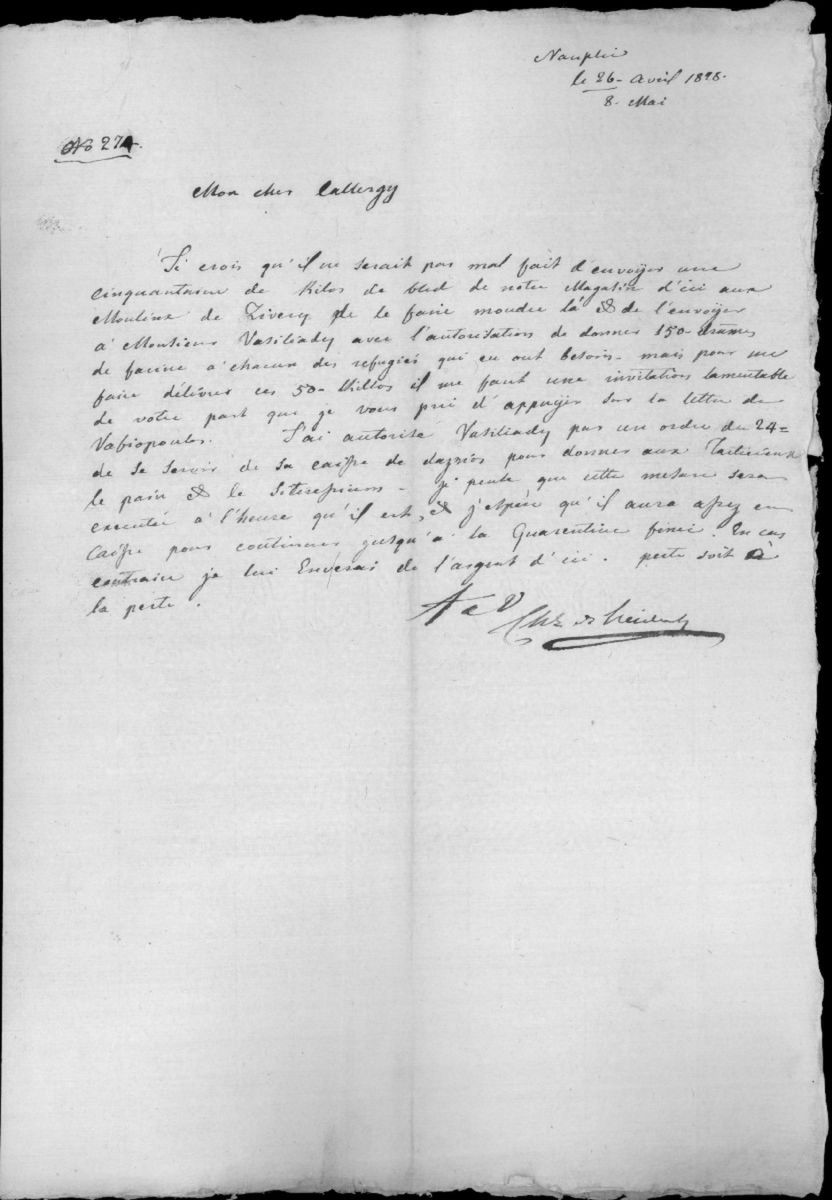 Nauplie
le 26 Avril 1828.
8. Mai
No 274.
Mon cher Callergy
Je crois qu'il ne serait pas mal fait d'envoyer une
cinquantaine de Kilos de bled de notre Magasin d'ici aux
Moulins de de le faire moudre là & de l'envoyer
à Monsieur Vasiliady avec l'autorisation de donner 150 drames
de farine à chacun des refugiés qui en ont besoin - mais pour me
faire délivrer ces 50 - Killos il me faut une invitation lamentable
de votre part que je vous prie d'appuyer sur la lettre de
J'ai autorisé Vasiliady par un ordre du 24 =
de se servir de sa caisse de pour donner aux
le pain & le - je pense que cette mesure sera
executée à l'heure qu'il est, & j'espère qu'il aura assez en
Caisse pour continuer jusqu'à la Quarentine finie. En cas
contraire je lui Enverai de l'argent d'ici. peste soit de
la peste.
T a V